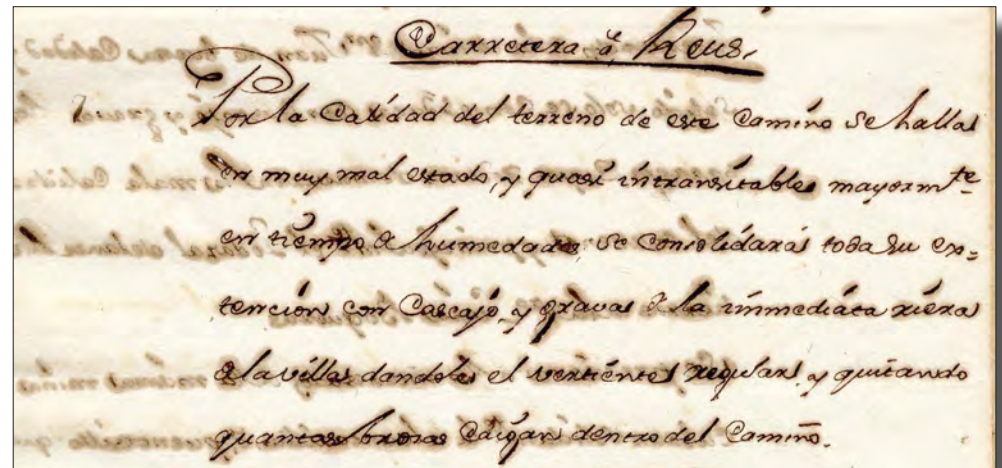 Carretera á Reus.
Por la Calidad del terreno de este Camino se halla
en muy mal estado, y quasi intransitable mayormte
en tiempo de humedades; se Consolidará toda su ex=
tención con Cascajo, y grava de la immediata riera
de la villa, dandole el vertiente regular y quitando
quantas brozas caigan dentro del Camino.